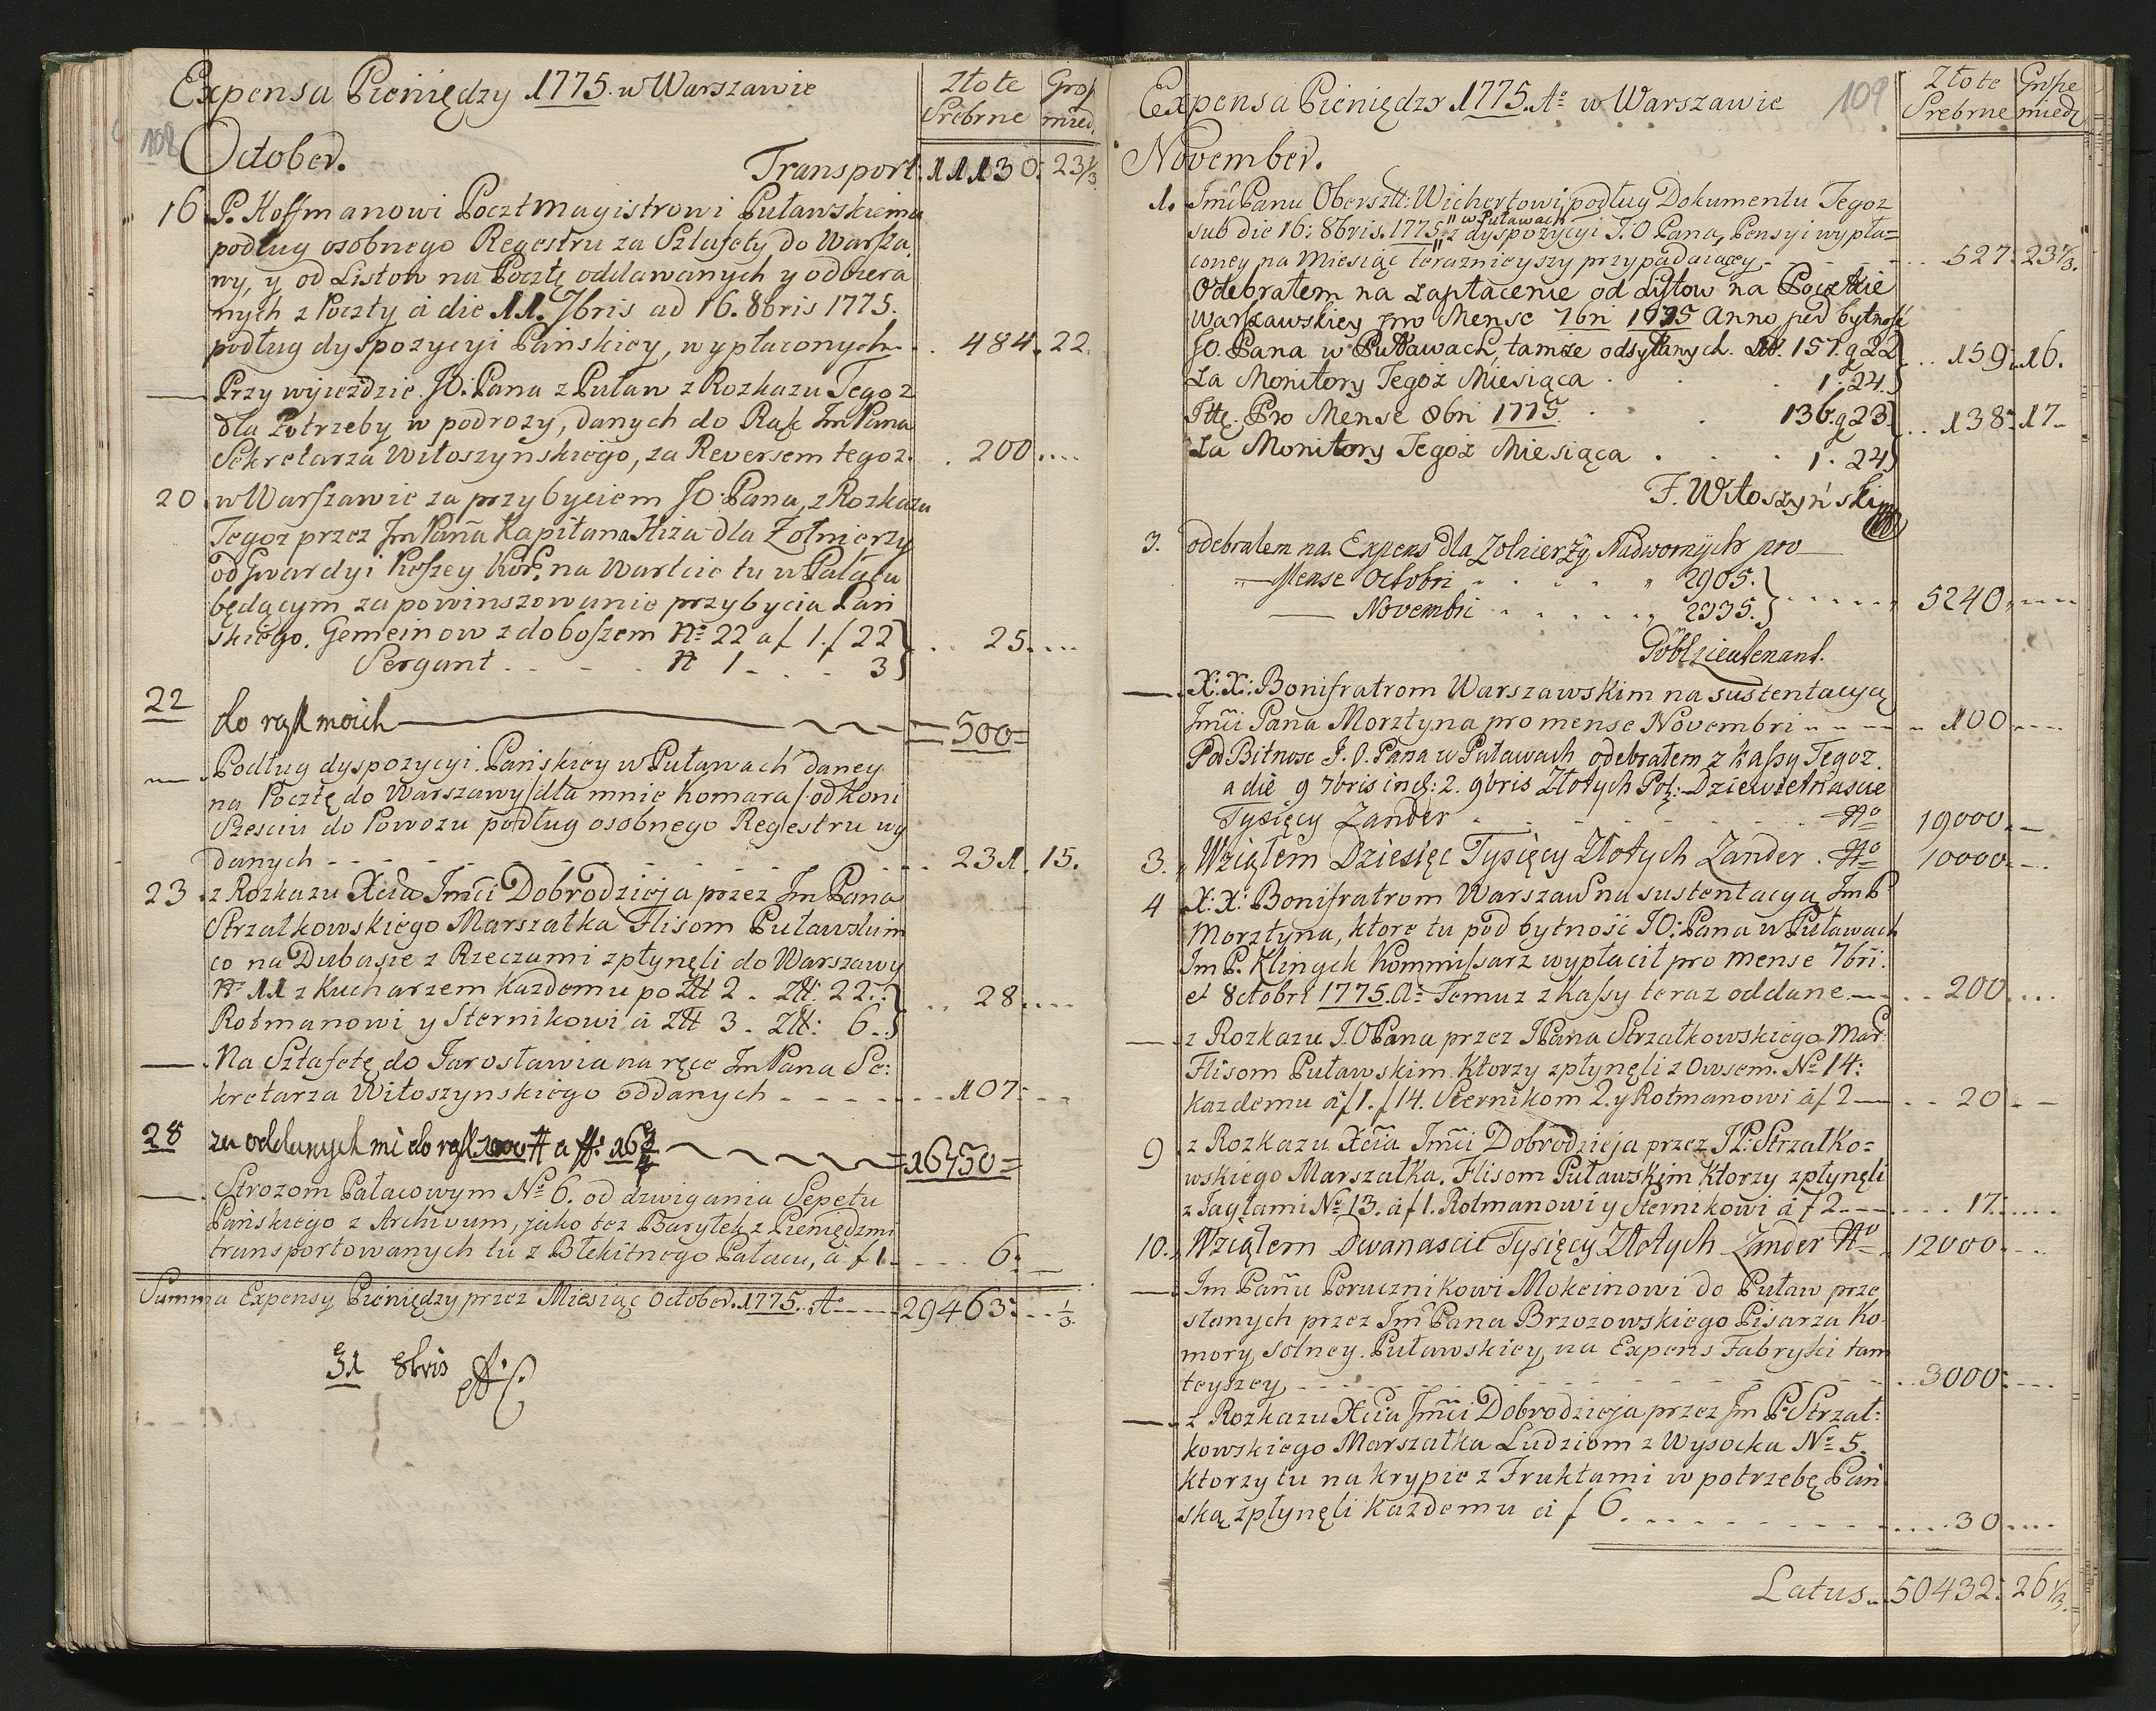 Expensa Pieniędzy 1775. w Warszawie
Złote Srebrne
Gros. mied.
108
October.
Transport. 11130. 23 1/3.
16 P. Hoffmanowi Pocztmagistrowi Puławskiemu
podług osobnego Regestru za Sztafety do Warsza
wy, y od Listow na Pocztę oddawanych y odbiera
nych z Poczty á die 11. 7bris ad 16. 8bris 1775.
podług dyspozycyi Pańskiey, wypłaconych . . 484. 22.
— Przy wyjezdzie JO: Pana z Puław z Rozkazu Tegoz
dla Potrzeby w podrozy, danych do Rąk Im Pana
Sekretarza Witoszynskiego, za Reversem tegoz. . 200. ...
20 w Warszawie za przybyciem JO: Pana, z Rozkazu
Tegoz przez Im Pana Kapitana Hiza dla Żołnierzy
od Gwardyi Pieszey Kor. na Warcie tu w Pałacu
będącym za powinszowanie przybycia Pań
skiego. Gemeinow z doboszem No 22 a f 1. f 22 } . . 25. ...
Sergant . . . . No 1 - . . 3 }
22 do rąk moich = 500 =
— Podług dyspozycyi Pańskiey w Puławach daney
na Pocztę do Warszawy /: dla mnie Komara /: od Koni
Szesciu do Powozu podług osobnego Regestru wy
danych . . 231. 15.
23 z Rozkazu Xcia Imci Dobrodzieja przez Im Pana
Strzałkowskiego Marszałka Flisom Puławskim
co na Dubasie z Rzeczami zpłynęli do Warszawy
No 11 z Kucharzem kazdemu po Złt 2 . Złt: 22. } . . 28. ...
Rotmanowi y Sternikowi á Złt 3 . Złt: 6. }
— Na Sztafetę do Jarosławia na ręce Im Pana Se:
kretarza Witoszynskiego oddanych . . . 107: . .
28 za oddanych mi do rąk 1000 # a ff: 16 3/4 = 16750 =
— Strozom Pałacowym No 6. od dzwigania Sepetu
Pańskiego z Archivum, jako tez Baryłek z Pieniędzmi
transportowanych tu z Błękitnego Pałacu, á f 1 . . . 6: —
Summa Expensy Pieniędzy przez Miesiąc October. 1775. Ao - - 29463: . . 1/3.
31 8bris
Expensa Pieniędzy 1775. Ao w Warszawie
109
Złote Srebrne
Grosze miedz
November.
1. Imci Panu Obersztt: Wichertowi podług Dokumentu Tegoz
sub die 16: 8bris. 1775. " w Puławach " z dyspozycyi J: O Pana, Pensyi wypła=
coney na Miesiąc teraznieyszy przypadaiącey . . 527: 23 1/3.
Odebrałem na zapłacenie od Listow na Poczckie
Warszawskiey pro Mense 7bri 1775 Anno pod bytność
JO. Pana w Puławach, tamze odsyłanych. Złł. 157. g 22 } . . 159. 16.
Za Monitory Tegoż Miesiąca . . . 1: 24. }
Ittę. Pro Mense 8bri 1775 . . . 136. g 23 } . . 138: 17-
Za Monitory Tegoż Miesiąca . . . 1: 24 }
F. Witoszyński
3. odebralem na Expens dla Zolnierzÿ Nadwornÿch pro
Mense Octobri . . . . " 2905. } . . . . 5240. ....
— Novembri . . . . " 2335. }
Göbl Lieutenant.
— X: X: Bonifratrom Warszawskim na sustentacyą
Imci Pana Morztyna pro mense Novembri . . . 100 ...
Pod Bitnosc J. O. Pana w Puławach odebrałem z kassy Tegoz.
a die 9 7bris incl: 2. 9bris Złotych Pol: Dziewietnascie
Tysięcy Zander . . . . No 19000. —
3. Wziąłem Dziesięc Tysięcy Złotych Zander . No 10000. - .
4 X: X: Bonifratrom Warszaw na sustentacyą Im P
Morztyna, ktore tu pod bytność JO: Pana w Puławach
Im P. Klingek Kommissarz wypłacił pro mense 7bri.
et 8ctobri 1775. Ao Temuz z kassy teraz oddane — . . 200. ...
— z Rozkazu J. O Pana przez J Pana Strzałkowskiego Mar:
Flisom Puławskim Ktorzy zpłynęli z Owsem. No 14:
kazdemu á f 1. f 14. Sternikom 2. y Rotmanowi á f 2 — . . 20 . —
9 z Rozkazu Xcia Imci Dobrodzieja przez J P: Strzałko=
wskiego Marszałka, Flisom Puławskim Ktorzy zpłynęli
z Jagłami No 13. á f 1. Rotmanowi y Sternikowi á f 2 - - . . . 17: ....
10. Wziąłem Dwanascie Tysięcy Złotych Zander No 12000. - .
— Im Panu Porucznikowi Mokeinowi do Puław prze
słanych przez Im Pana Brzozowskiego Pisarza Ko
mory Solney Puławskiey, na Expens Fabryki tam
teyszey, . . . 3000: ...
— z Rozkazu Xcia Imci Dobrodzieja przez Im P. Strzał:
kowskiego Marszałka Ludziom z Wysocka No 5.
ktorzy tu na krypie z Fruktami w potrzebę Pań
ską zpłynęli kazdemu á f 6. . . . 30. ...
Latus. 50432: 26 1/3.